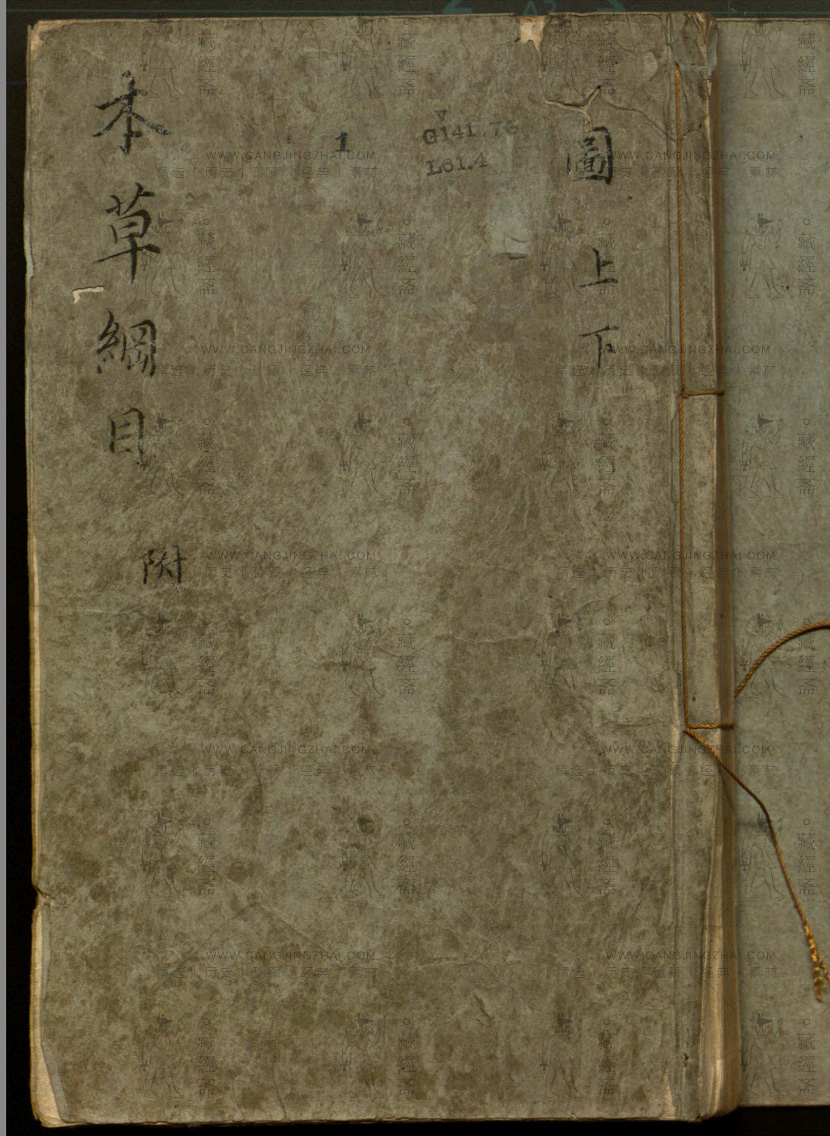 圖上下
本草綱目
附
1
G141.76
L61.4
WWW.CANGJINGZHAI.COM
藏經斋